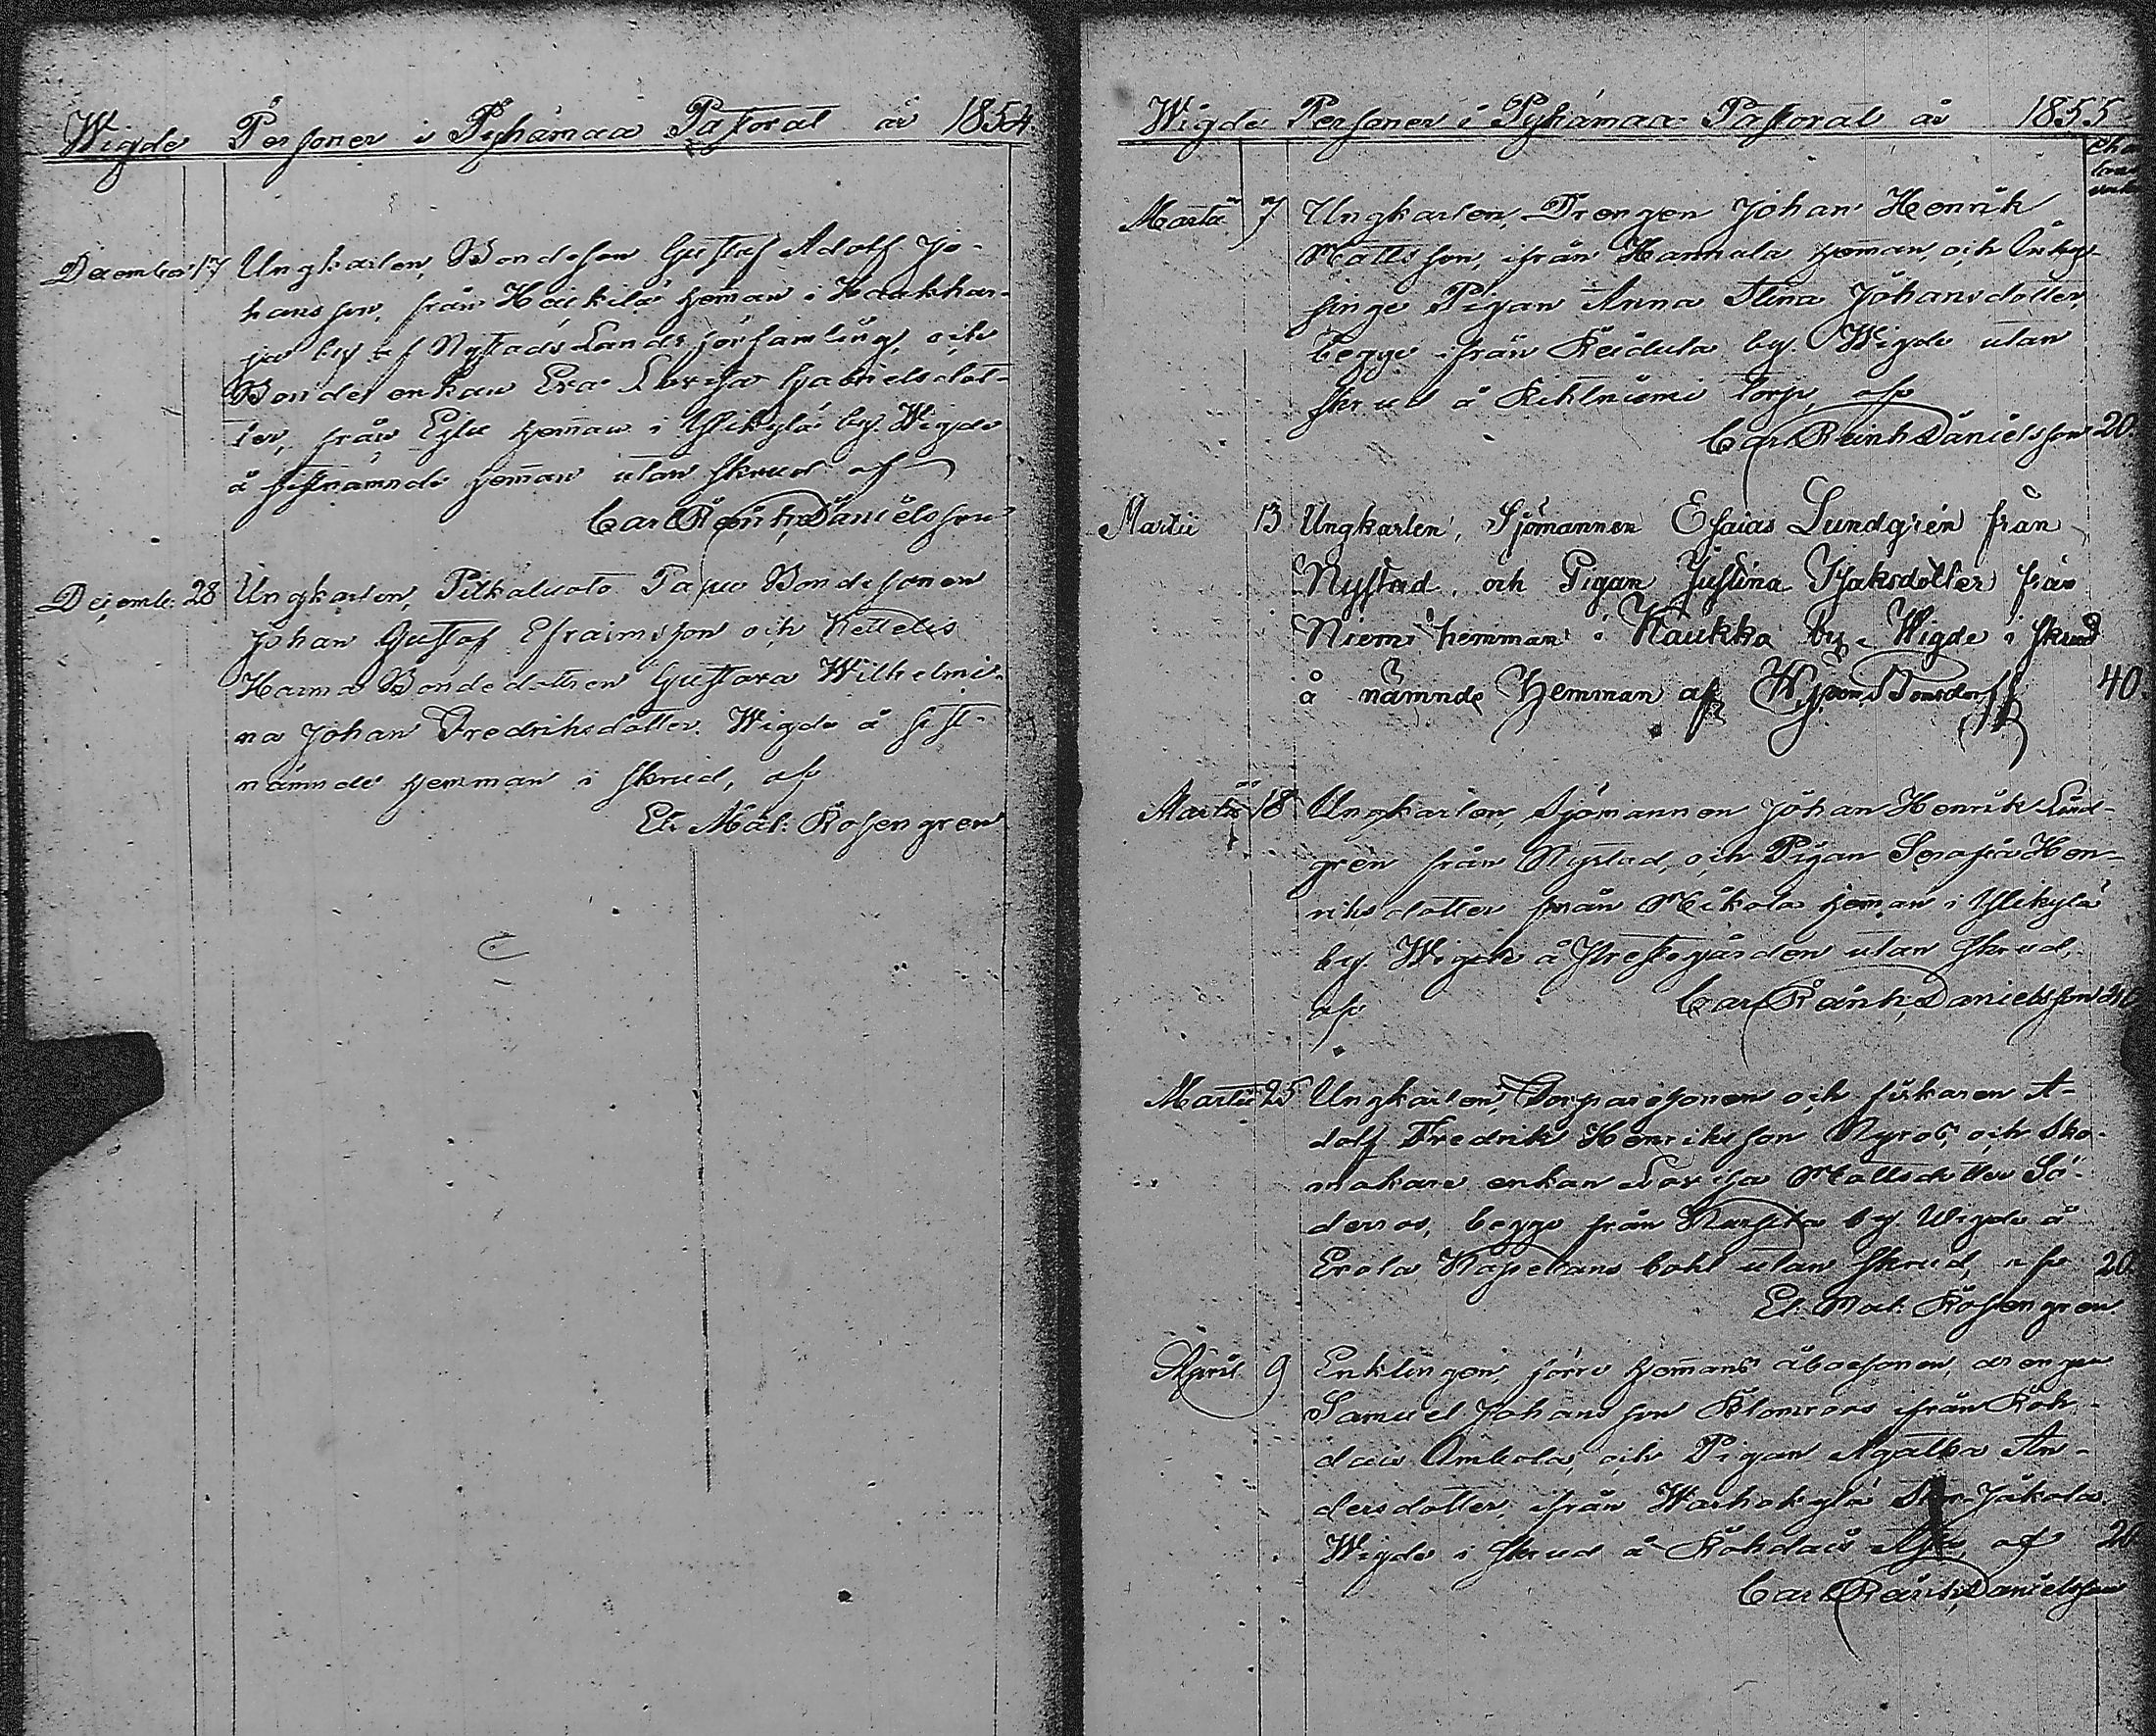 Wigde Personer i Pyhämaa Pastorat år 1854.
December 17 Ungkarlen, Bondesonen Gustaf Adolf Jo-
hansson, från Häikilä heman i Haukhar-
ja by af Nystads Lands församling, och
Bonde enkan Eva Lovisa Gabrielsdot-
ter, från Eglu heman i Ylikylä by. Wigde
å sistnämnde heman utan skrud af
Carl Reinh. Danielsson
Decemb. 28 Ungkarlen, Pitkäluoto Bondesonen
Johan Gustaf Efraimsson och Kettelis
Haima Bondedottren Gustava Wilhelmi-
na Johan Fredriksdotter. Wigde å sist-
nämnde hemman i skrud, af
El. Mat. Rosengren
Wigde Personer i Pyhämaa Pastorat år 1855
Martii 7 Ungkarlen, Drengen Johan Henrik
Mattsson, ifrån Hannula heman, och Inhy-
singe Pigan Anna Stina Johansdotter,
begge ifrån Reidula by. Wigde utan
skrud å Kihlniemi torp, af
Carl Reinh. Danielsson 20
Martii 13 Ungkarlen, Sjömannen Esaias Lundgrén från
Nystad, och Pigan Justina Isaksdotter från
Niemi hemman i Kaukka by. Wigde i skrud
å nämnde Hemman af W. von Bonsdorff 40
Martii 18 Ungkarlen, Sjömannen Johan Henrik Lund-
grén från Nystad, och Pigan Serafia Hen-
riksdotter från Mikola heman i Ylikylä
by. Wigde å Prestegården utan skrud,
af Carl Reinh. Danielsson 20
Martii 25 Ungkarlen, Torparesonen och fiskaren A-
dolf Fredrik Henriksson Nyros, och Sko-
makare enkan Lovisa Mattsdotter Sö-
derros, begge från by. Wigde å
Erola Kapellans bohl utan skrud, af 20
El. Mat. Rosengren
April 9 Enklingen, förre hemans åboesonen, drengen
Samuel Johansson Blomroos ifrån Röh-
dais och Pigan Agatha An-
dersdotter, ifrån Warhokylä Jäkola.
Wigde i skrud å Röhdais af 20
Carl Reinh. Danielsson